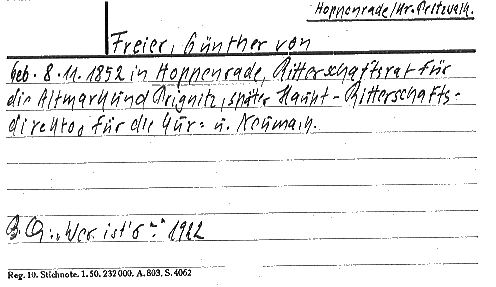 Hoppenrade/Kr. Pritzwalk.
Freier, Günther von
geb. 8.11.1852 in Hoppenrade, Ritterschaftsrat für
die Altmark und Prignitz, später Haupt-Ritterschafts-
direktor für die Kur- u. Neumark.
B.Q.: "Wer ist's" 1922
Reg. 10. Stichnote. 1. 50. 232 000. A. 803. S. 4062